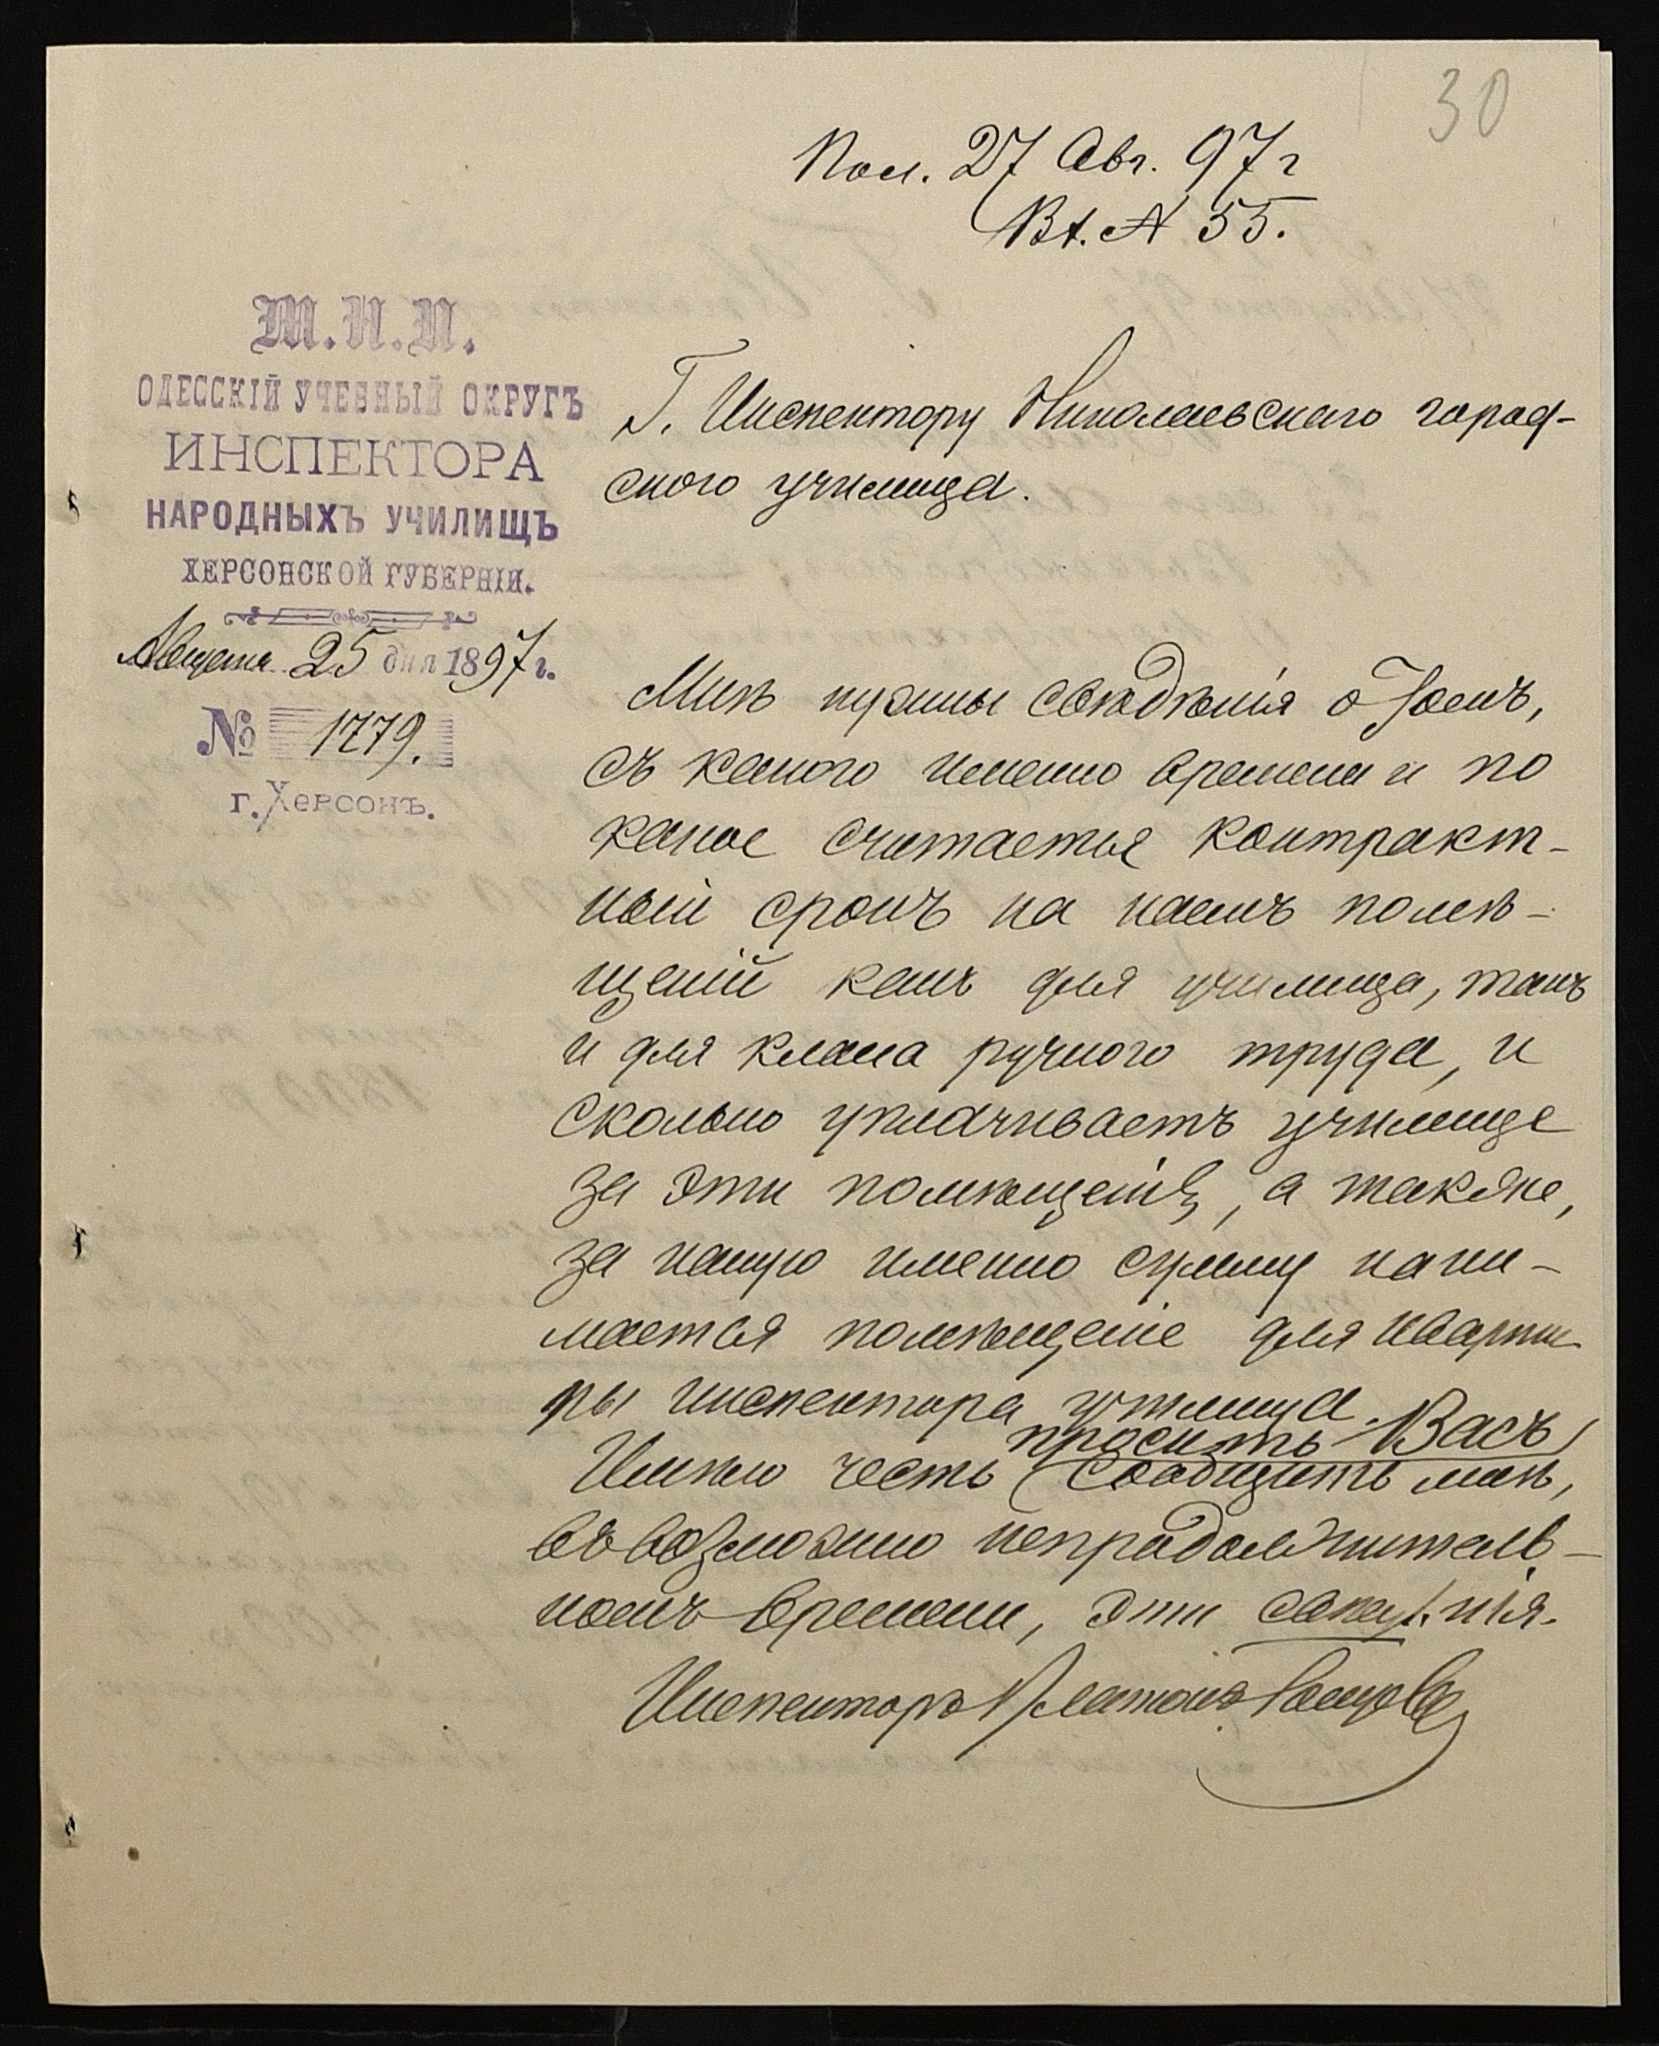 30
Пол. 27 Авг. 97 г
Вх. № 55.
М.Н.П.
ОДЕССКІЙ УЧЕБНЫЙ ОКРУГЪ
ИНСПЕКТОРА
НАРОДНЫХЪ УЧИЛИЩЪ
ХЕРСОНСКОЙ ГУБЕРНІИ.
Августа 25 дня 1897 г.
№ 1779.
г. Херсонъ.
Г. Инспектору Николаевскаго город-
ского училища.
Мнѣ нужны свѣдѣнія о томъ,
съ какого именно времени и по
какое считается контракт-
ный срокъ на наемъ помѣ-
щеній какъ для училища, такъ
и для класса ручного труда, и
сколько уплачиваетъ училище
за эти помѣщенія, а также,
за какую именно сумму нани-
мается помѣщеніе для кварти-
ры инспектора училища.
просить Васъ
Имѣю честь сообщить мнѣ,
въ возможно непродолжитель-
номъ времени, эти свѣдѣнія.
Инспекторъ